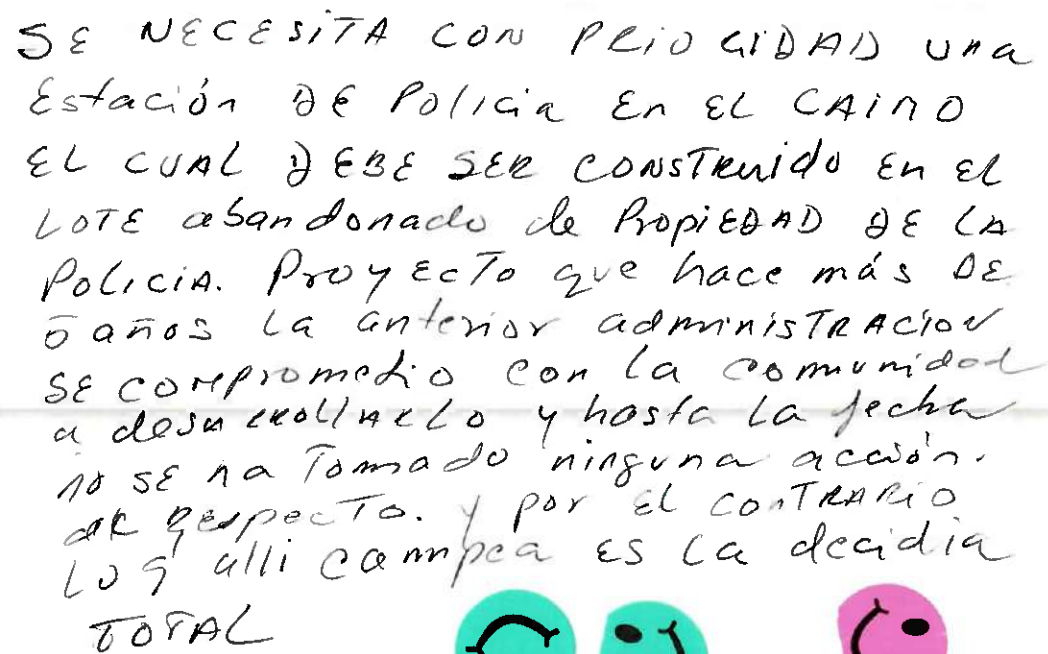 SE NECESITA CON PRIORIDAD una
Estación DE Policia En EL CAIMO
EL CUAL DEBE SER CONSTRuido En El
LOTE abandonado de PropiEDAD DE LA
PoliciA. ProyEcTo que hace más DE
5 años La anterior administRACioN
SE compromedio con la comunidad
a desarrollARLO y hasta La fecha
no SE ha Tomado ninguna acción.
al RespecTo. y por El conTRARIO
LO q alli campea ES La decidia
TOTAL